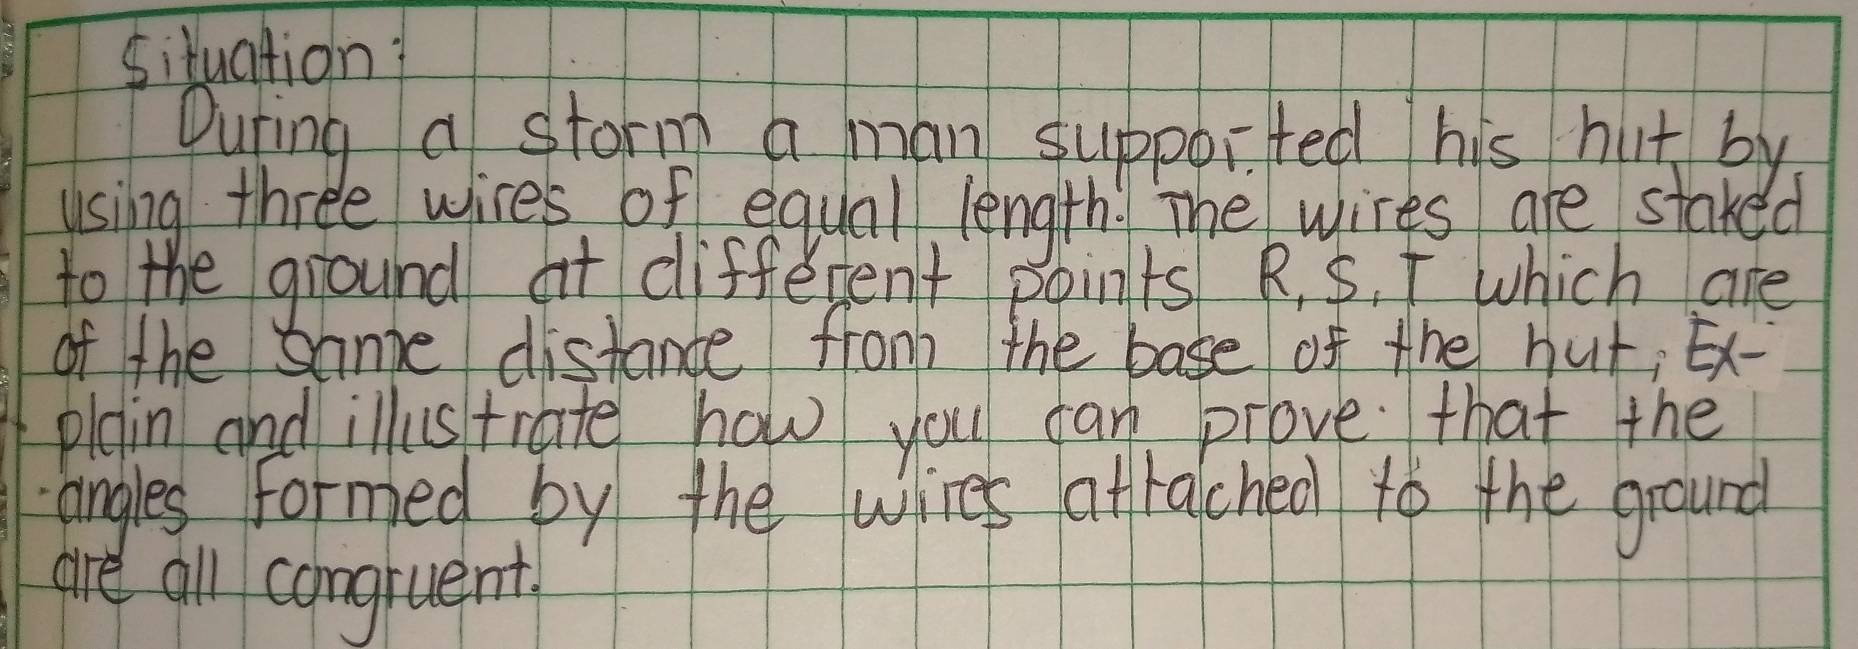 Situation:
During a storm a man supported his hut by
using three wires of equal length. The wires are staked
to the ground at different points R, S, T which are
of the same distance from the base of the hut. Ex-
plain and illustrate how you can prove that the
angles formed by the wires attached to the ground
are all congruent.